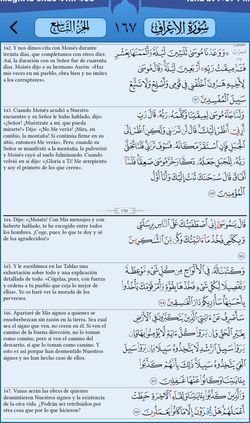 سورة الأعراف
١٦٧
الجزء التاسع
142. Y nos dimos cita con Moisés durante
treinta días, que completamos con otros diez.
Así, la duración con su Señor fue de cuarenta
días. Moisés dijo a su hermano Aarón: «Haz
mis veces en mi pueblo, obra bien y no imites
a los corruptores».
۞ وَوَٰعَدْنَا مُوسَىٰ ثَلَٰثِينَ لَيْلَةً وَأَتْمَمْنَٰهَا بِعَشْرٍ
فَتَمَّ مِيقَٰتُ رَبِّهِۦٓ أَرْبَعِينَ لَيْلَةً وَقَالَ مُوسَىٰ
لِأَخِيهِ هَٰرُونَ ٱخْلُفْنِي فِي قَوْمِي وَأَصْلِحْ وَلَا تَتَّبِعْ
سَبِيلَ ٱلْمُفْسِدِينَ
143. Cuando Moisés acudió a Nuestro
encuentro y su Señor le hubo hablado, dijo:
«¡Señor! ¡Muéstrate a mí, que pueda
mirarte!» Dijo: «¡No Me verás! ¡Mira, en
cambio, la montaña! Si continúa firme en su
sitio, entonces Me verás». Pero, cuando su
Señor se manifestó a la montaña, la pulverizó
y Moisés cayó al suelo fulminado. Cuando
volvió en sí dijo: «¡Gloria a Ti! Me arrepiento
y soy el primero de los que creen».
وَلَمَّا جَآءَ مُوسَىٰ لِمِيقَٰتِنَا وَكَلَّمَهُۥ رَبُّهُۥ قَالَ رَبِّ
أَرِنِيٓ أَنظُرْ إِلَيْكَ قَالَ لَن تَرَىٰنِي وَلَٰكِنِ ٱنظُرْ إِلَى
ٱلْجَبَلِ فَإِنِ ٱسْتَقَرَّ مَكَانَهُۥ فَسَوْفَ تَرَىٰنِي فَلَمَّا تَجَلَّىٰ رَبُّهُۥ
لِلْجَبَلِ جَعَلَهُۥ دَكًّا وَخَرَّ مُوسَىٰ صَعِقًا فَلَمَّآ
أَفَاقَ قَالَ سُبْحَٰنَكَ تُبْتُ إِلَيْكَ وَأَنَا۠ أَوَّلُ
ٱلْمُؤْمِنِينَ
144. Dijo: «¡Moisés! Con Mis mensajes y con
haberte hablado, te he escogido entre todos
los hombres. ¡Coge, pues, lo que te doy y sé
de los agradecidos!»
قَالَ يَٰمُوسَىٰٓ إِنِّي ٱصْطَفَيْتُكَ عَلَى ٱلنَّاسِ بِرِسَٰلَٰتِي
وَبِكَلَٰمِي فَخُذْ مَآ ءَاتَيْتُكَ وَكُن مِّنَ ٱلشَّٰكِرِينَ
145. Y le escribimos en las Tablas una
exhortación sobre todo y una explicación
detallada de todo. «Cógelas, pues, con fuerza
y ordena a tu pueblo que coja lo mejor de
ellas». Yo os haré ver la morada de los
perversos.
وَكَتَبْنَا لَهُۥ فِي ٱلْأَلْوَاحِ مِن كُلِّ شَيْءٍ مَّوْعِظَةً
وَتَفْصِيلًا لِّكُلِّ شَيْءٍ فَخُذْهَا بِقُوَّةٍ وَأْمُرْ قَوْمَكَ يَأْخُذُوا۟
بِأَحْسَنِهَا سَأُو۟رِيكُمْ دَارَ ٱلْفَٰسِقِينَ
146. Apartaré de Mis signos a quienes se
ensoberbezcan sin razón en la tierra. Sea cual
sea el signo que ven, no creen en él. Si ven el
camino de la buena dirección, no lo toman
como camino, pero si ven el camino del
descarrío, sí que lo toman como camino. Y
esto es así porque han desmentido Nuestros
signos y no han hecho caso de ellos.
سَأَصْرِفُ عَنْ ءَايَٰتِيَ ٱلَّذِينَ يَتَكَبَّرُونَ فِي ٱلْأَرْضِ
بِغَيْرِ ٱلْحَقِّ وَإِن يَرَوْا۟ كُلَّ ءَايَةٍ لَّا يُؤْمِنُوا۟ بِهَا
وَإِن يَرَوْا۟ سَبِيلَ ٱلرُّشْدِ لَا يَتَّخِذُوهُ سَبِيلًا وَإِن يَرَوْا۟
سَبِيلَ ٱلْغَيِّ يَتَّخِذُوهُ سَبِيلًا ذَٰلِكَ بِأَنَّهُمْ كَذَّبُوا۟
بِـَٔايَٰتِنَا وَكَانُوا۟ عَنْهَا غَٰفِلِينَ
147. Vanas serán las obras de quienes
desmintieron Nuestros signos y la existencia
de la otra vida. ¿Podrán ser retribuidos por
otra cosa que por lo que hicieron?
وَٱلَّذِينَ كَذَّبُوا۟ بِـَٔايَٰتِنَا وَلِقَآءِ ٱلْءَاخِرَةِ حَبِطَتْ
أَعْمَٰلُهُمْ هَلْ يُجْزَوْنَ إِلَّا مَا كَانُوا۟ يَعْمَلُونَ